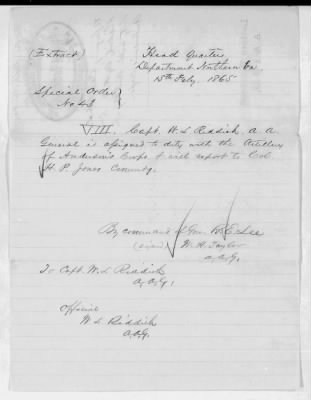 (Extract)
Head Quarters
Department Northern Va
15th Feby. 1865
Special Order
No 43
VIII. Capt. W. L. Riddick, A. A.
General is assigned to duty with the Artillery
of Anderson's Corps & will report to Col.
H. P. Jones Commdg.
By command of Gen. R. E. Lee
(signed) W. H. Taylor
A. A. G.
To Capt. W. L. Riddick
A. A. G.
Official
W. L. Riddick
A. A. G.